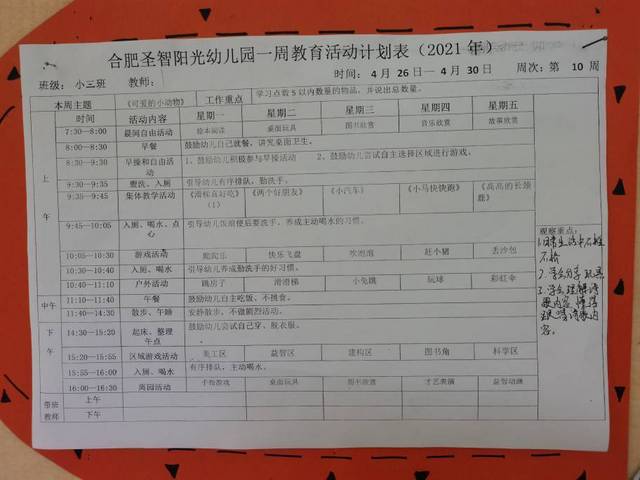 合肥圣智阳光幼儿园一周教育活动计划表（2021 年）
班级：小三班 教师： 时间：4 月 26 日— 4 月 30 日 周次：第 10 周
本周主题 《可爱的小动物》 工作重点 学习点数 5 以内数量的物品，并说出总数量。
时间 活动内容 星期一 星期二 星期三 星期四 星期五
上午
7:30—8:00 晨间自由活动 绘本阅读 桌面玩具 图书欣赏 音乐欣赏 故事欣赏
8:00—8:30 早餐 鼓励幼儿自己就餐，讲究桌面卫生。
8:30—9:30 早操和自由活动 1、鼓励幼儿积极参与早操活动 2、鼓励幼儿尝试自主选择区域进行游戏。
9:30—9:35 盥洗、入厕 引导幼儿有序排队，勤洗手。
9:35—9:45 集体教学活动 《滑梯真好吃》（1） 《两个好朋友》 《小汽车》 《小马快快跑》 《高高的长颈鹿》
9:45—10:05 入厕、喝水、点心 引导幼儿饭前便后要洗手，养成主动喝水的习惯。
10:05—10:30 游戏活动 快乐飞盘 吹泡泡 赶小猪 丢沙包
10:30—10:40 入厕、喝水 引导幼儿养成勤洗手的好习惯。
10:40—11:10 户外活动 跳房子 滑滑梯 小兔跳 玩球 彩虹伞
中午
11:10—11:40 午餐 鼓励幼儿自主吃饭，不挑食。
11:40—14:30 散步、午睡 安静散步，不做剧烈活动。
下午
14:30—15:20 起床、整理午点 鼓励幼儿尝试自己穿、脱衣服。
15:20—15:55 区域游戏活动 美工区 益智区 建构区 图书角 科学区
15:55—16:00 入厕、喝水 有序排队，主动喝水。
16:00—16:30 离园活动 手指游戏 桌面玩具 图书欣赏 才艺表演 益智动画
带班教师 上午
下午
观察重点：
2.学会分享玩具
3.学会理解诗
歌内容
容。